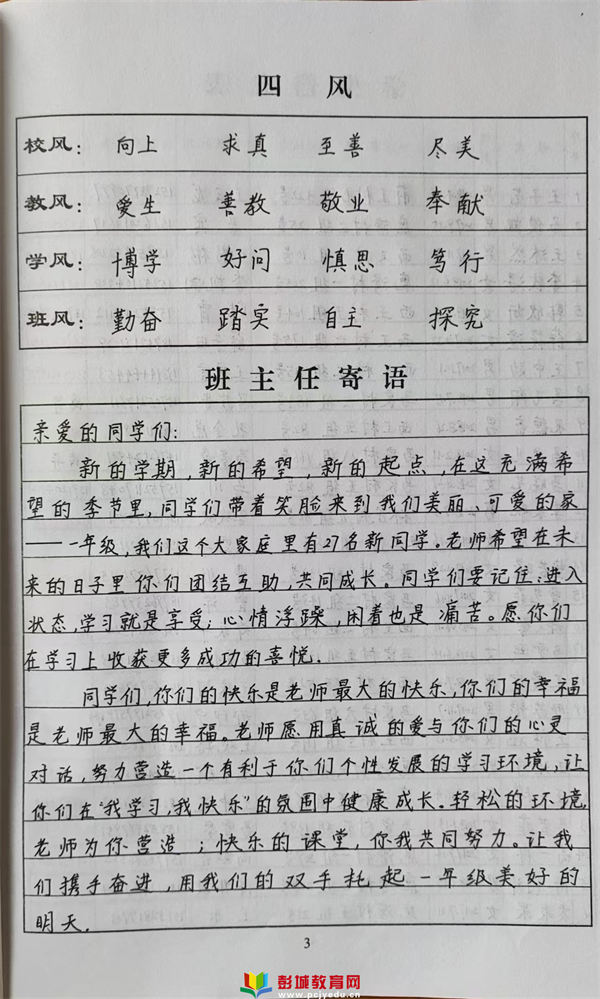 四 风
校风: 向上 求真 至善 尽美
教风: 爱生 善教 敬业 奉献
学风: 博学 好问 慎思 笃行
班风: 勤奋 踏实 自主 探究
班主任寄语
亲爱的同学们:
新的学期，新的希望，新的起点，在这充满希
望的季节里，同学们带着笑脸来到我们美丽、可爱的家
——一年级，我们这个大家庭里有27名新同学。老师希望在未
来的日子里你们团结互助，共同成长。同学们要记住:进入
状态，学习就是享受；心情浮躁，闲着也是痛苦。愿你们
在学习上收获更多成功的喜悦.
同学们，你们的快乐是老师最大的快乐，你们的幸福
是老师最大的幸福。老师愿用真诚的爱与你们的心灵
对话，努力营造一个有利于你们个性发展的学习环境，让
你们在"我学习，我快乐"的氛围中健康成长。轻松的环境，
老师为你营造；快乐的课堂，你我共同努力。让我
们携手奋进，用我们的双手托起一年级美好的
明天.
3
彭城教育网
www.pcjyedu.cn